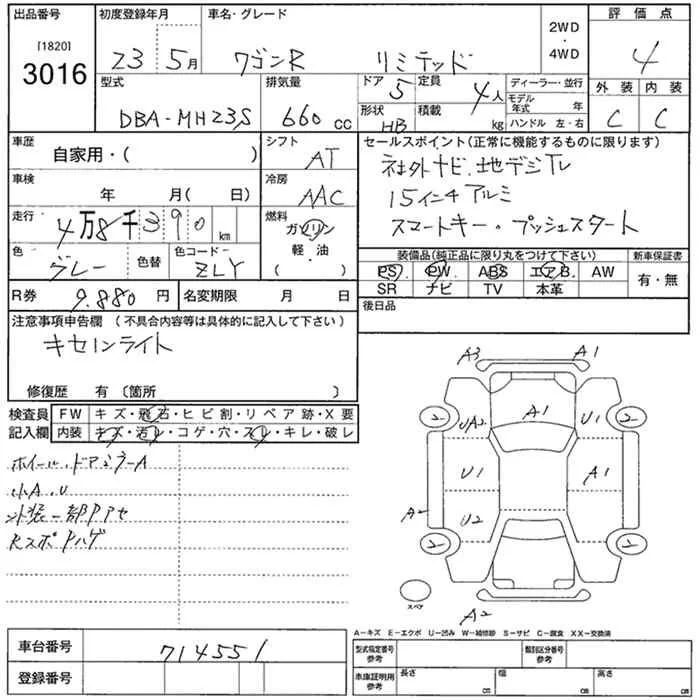 出品番号 初度登録年月 車名・グレード 2WD・4WD 評価点
[1820]
3016 23 5月 ワゴンR リミテッド 4
型式 排気量 ドア 5 定員 4人 ディーラー・並行 外装 内装
DBA-MH23S 660 CC 形状 HB 積載 kg モデル年式 年 ハンドル 左・右 C C
車歴 シフト セールスポイント(正常に機能するものに限ります)
自家用・( ) AT 社外ナビ.地デジTV
車検 冷房 15インチアルミ
年 月( 日) AAC スマートキー・プッシュスタート
走行 4万8千390 km 燃料 ガソリン
軽・油
( )
色 グレー 色替 色コード ZLY
装備品(純正品に限り丸をつけて下さい) 新車保証書
PS PW ABS エアB. AW 有・無
SR ナビ TV 本革
R券 9.880円 名変期限 月 日 後日品
注意事項申告欄 (不具合内容等は具体的に記入して下さい)
キセノンライト
修復歴 有 〔箇所 〕
検査員 FW キズ・飛石・ヒビ割・リペア跡・X要
記入欄 内装 キズ・汚レ・コゲ・穴・スレ・キレ・破レ
ホイール.ドアミラーA
小A.U
外装一部Pアセ
RスポPハゲ
A3 A1
2 UA2 A1 U1 2
U1 A1
A2 U2
2 2
スペア A2
A-キズ E-エクボ U-凹み W-補修跡 S-サビ C-腐食 XX-交換済
車台番号 714551
登録番号
型式指定番号 参考 類別区分番号 参考
車庫証明用 参考 長さ cm 幅 cm 高さ cm